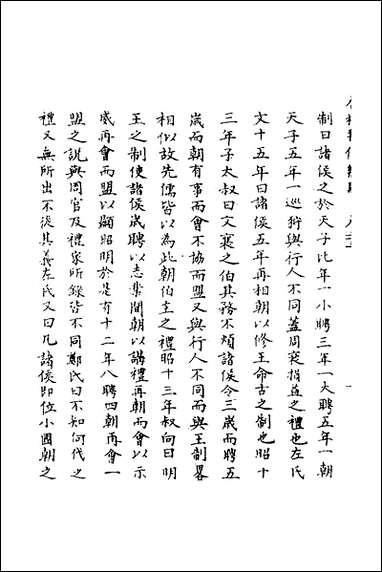 制曰諸侯之於天子比年一小聘三年一大聘五年一朝
天子五年一巡狩與行人不同蓋周衰損益之禮也左氏
文十五年曰諸侯五年再相朝以修王命古之制也昭十
三年子太叔曰文襄之伯其務不煩諸侯令三歲而聘五
歲而朝有事而會不協而盟又與行人不同而與王制畧
相似故先儒皆以為此朝伯主之禮昭十三年叔向曰明
王之制使諸侯歲聘以志業間朝以講禮再朝而會以示
威再會而盟以顯昭明於是有十二年八聘四朝再會一
盟之說與周官及禮家所錄皆不同鄭氏曰不知何代之
禮又無所出不從其義左氏又曰凡諸侯即位小國朝之